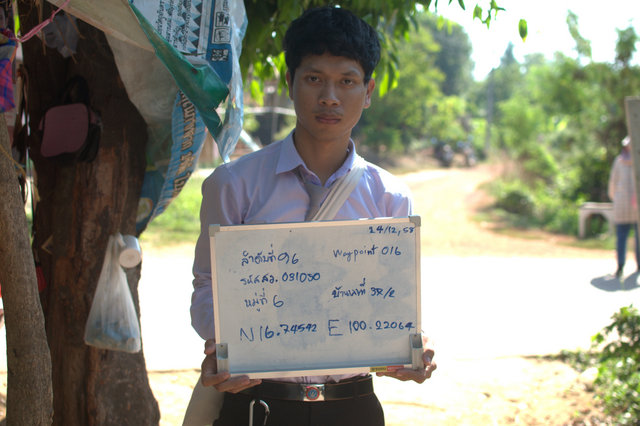 24/12/58
ลำดับที่ 96 Waypoint 016
รหัส สว. 031050
หมู่ที่ 6 บ้านเลขที่ 38/2
N 16.74542 E 100.22064